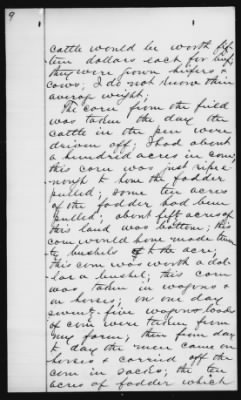 9
1
cattle would be worth fif
teen dollars each for beef
they were grown heifers &
cows; I do not know their
averag weight;
The corn from the field
was taken the day the
cattle in the pen were
driven off; I had about
a hundred acres in corn;
this corn was just ripe
enough to have the fodder
pulled; some ten acres
of the fodder had been
pulled; about fift acres of
this land was bottom; this
corn would have made twen
ty bushels to the acre;
This corn was worth a dol-
lar a bushel; this corn
was taken in wagons &
on horses; on one day
twenty five wagons loads
of corn were taken from
my farm; then from day
to day the men came on
horses & carried off the
corn in sacks; the ten
acres of fodder which